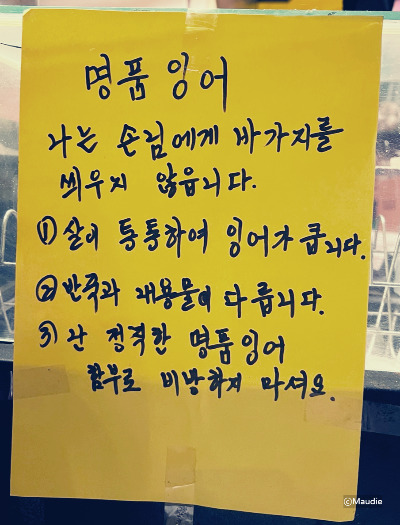 명품 잉어
나는 손님에게 바가지를
씌우지 않읍니다.
① 살이 통통하여 잉어가 큽니다.
② 반죽과 내용물이 다릅니다.
③ 난 정력한 명품잉어
함부로 비방하지 마셔요.
©Maudie